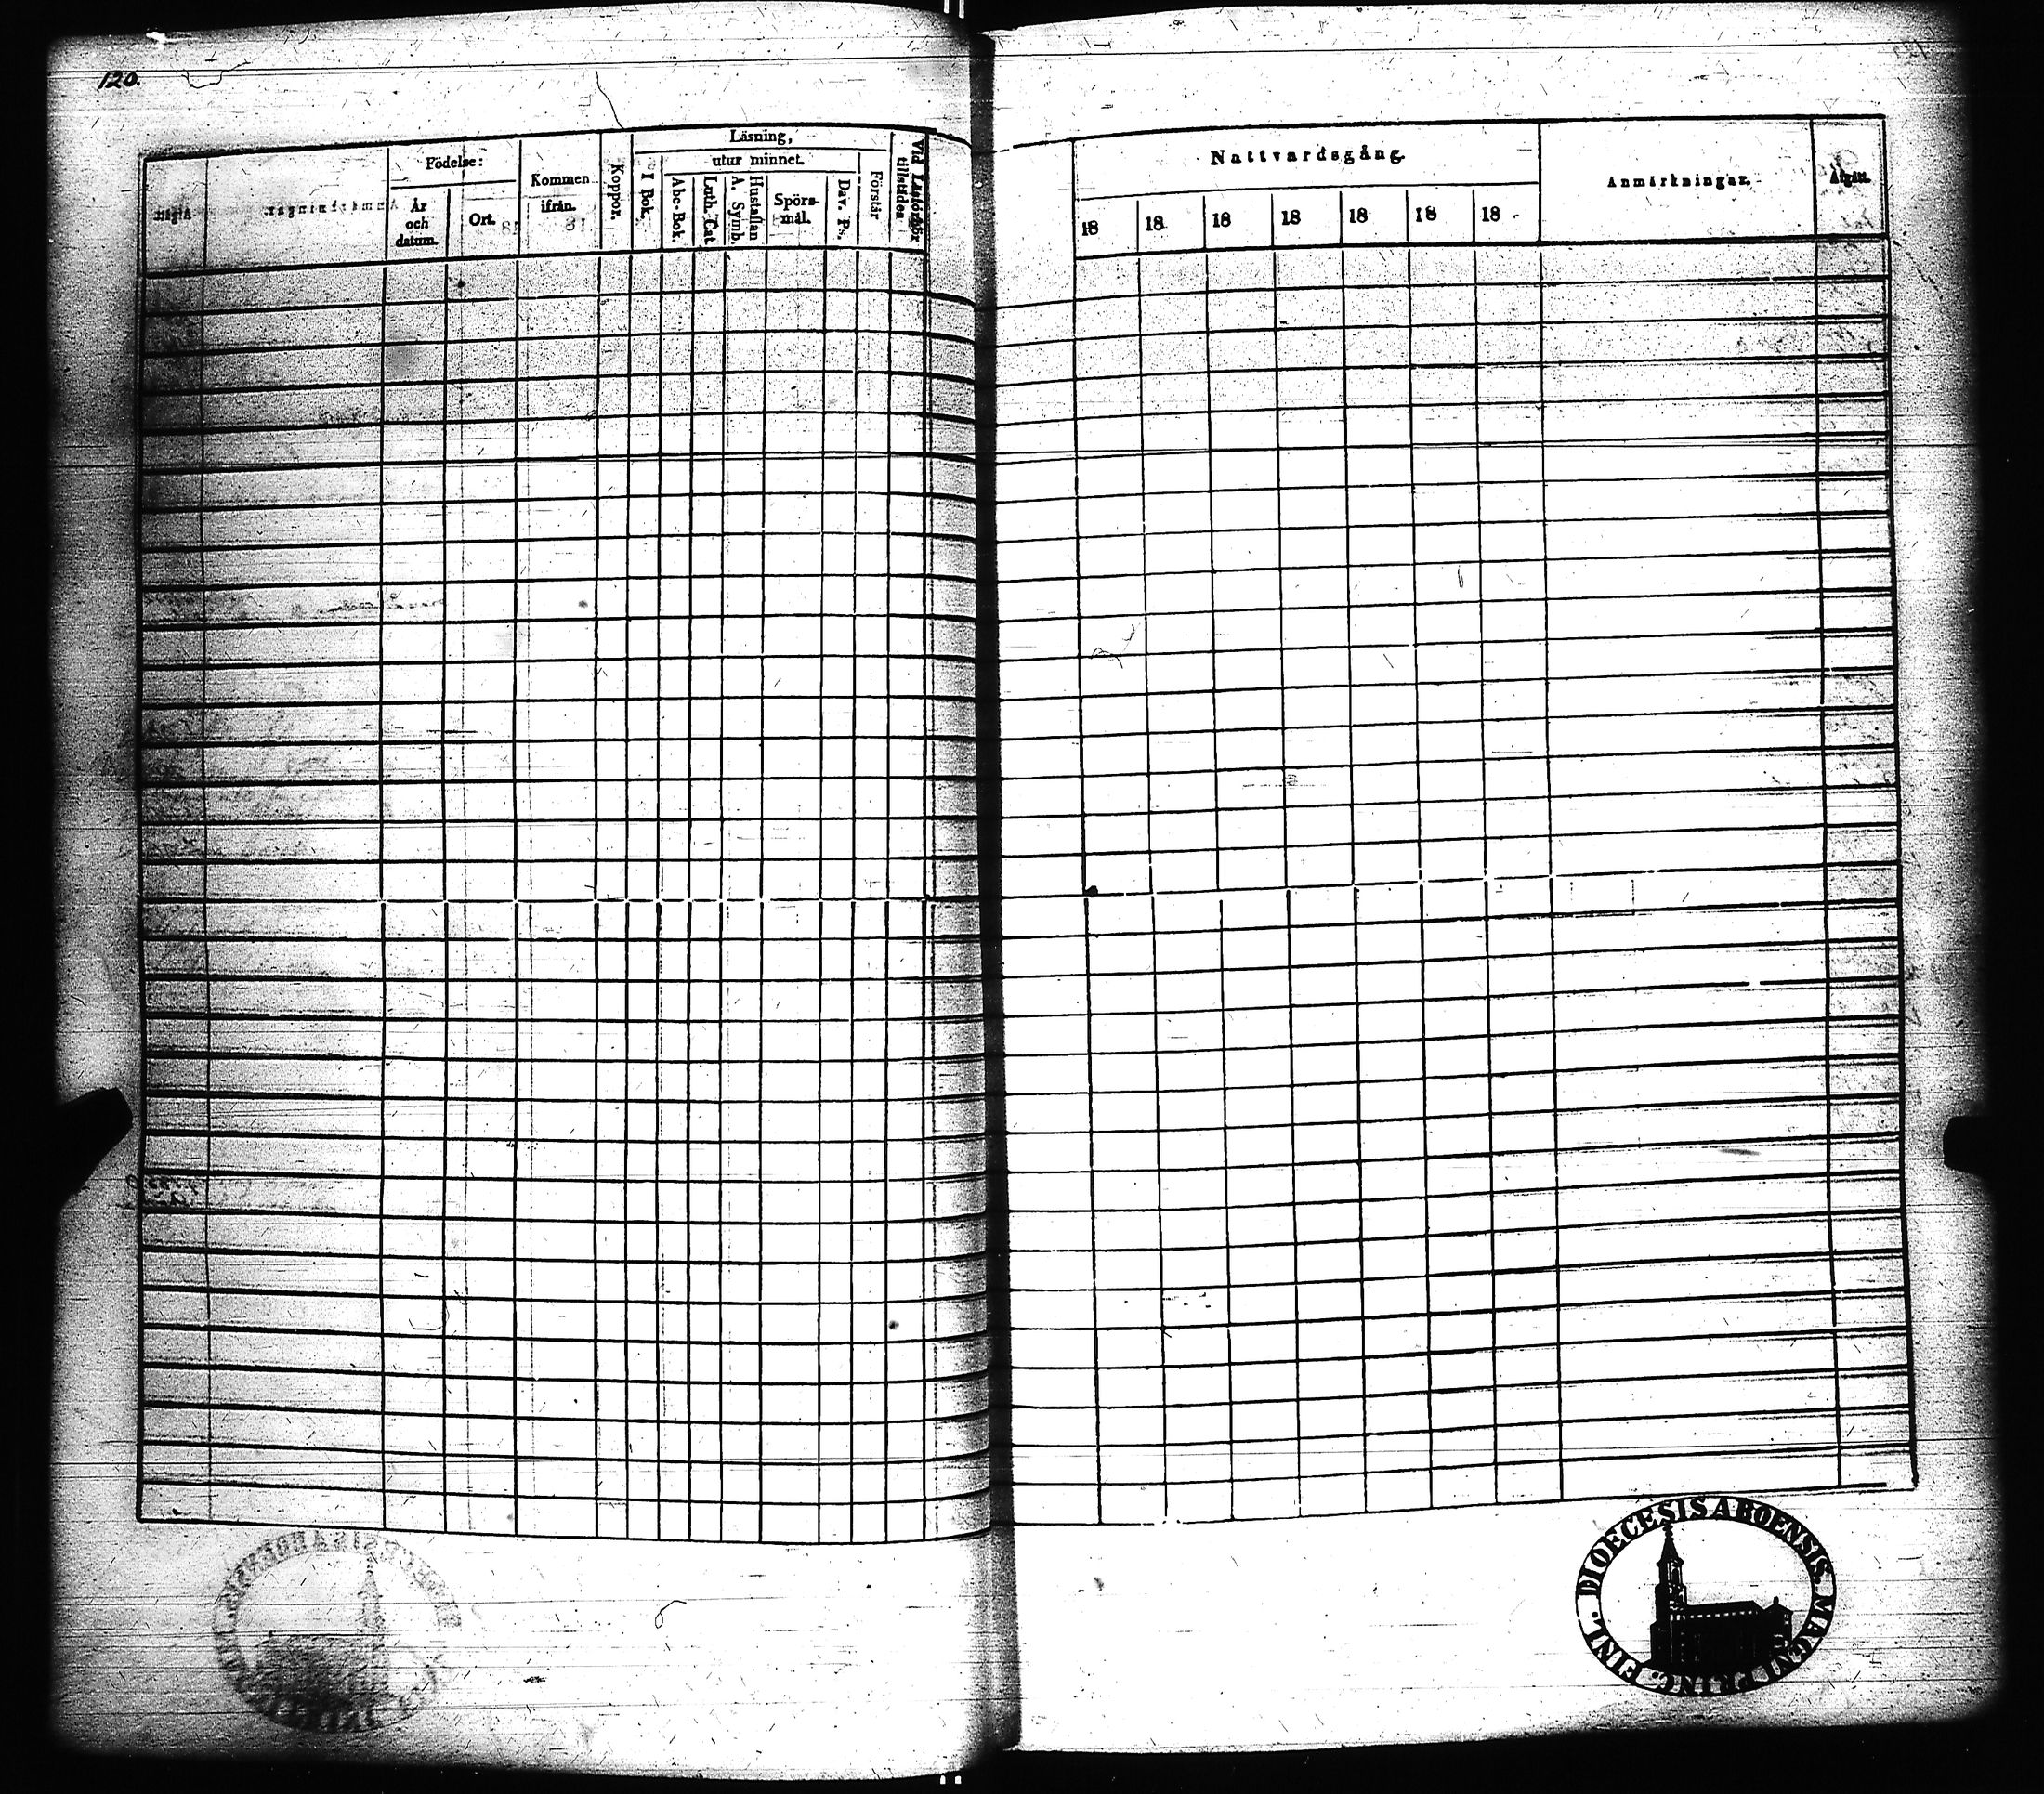 120.
Födelse:
År och datum.
Ort.
Kommen ifrån.
Koppor.
Läsning,
I Bok.
utur minnet.
Abc-Bok.
Luth. Cat.
Hustaflan A. Symb.
Spörs-mål.
Dav. Ps.
Förstår
Vid Läsförhör tillstädes
Nattvardsgång.
18 18 18 18 18 18 18
Anmärkningar.
Afgått.
DIOECESIS ABOENSIS. MAGNI PRINC. FINL.